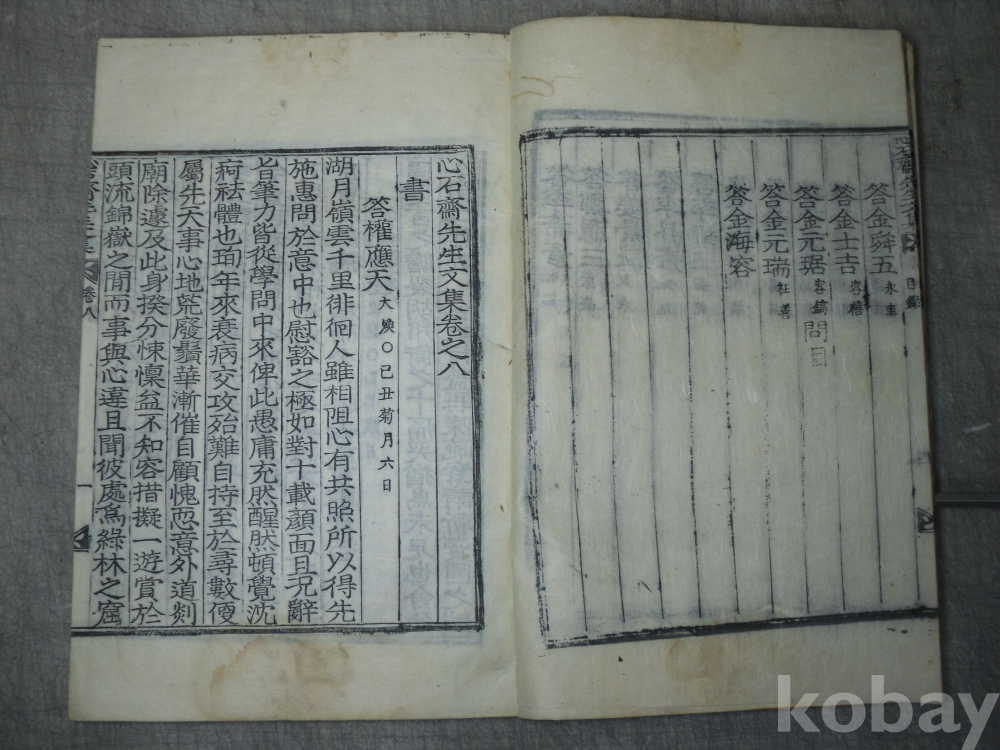 答金舜五
答金士吉 容禧
答金元琚 容鎬 問目
答金元瑞
答金海容
心石齋先生文集卷之八
書
答權應天 大煥○己丑菊月六日
湖月嶺雲千里徘徊人雖相阻心有共照所以得先
施惠問於意中也慰豁之極如對十載顏面且況辭
旨筆力皆從學問中來俾此愚庸充然醒然頓覺沈
痾祛體也珣年來衰病交攻殆難自持至於尋數便
屬先天事心地荒廢鬚華漸催自顧愧恧意外道剡
廟除遽及此身揆分悚懍益不知容措擬一遊賞於
頭流錦嶽之間而事與心違且聞彼處爲綠林之窟
卷八
一
kobay